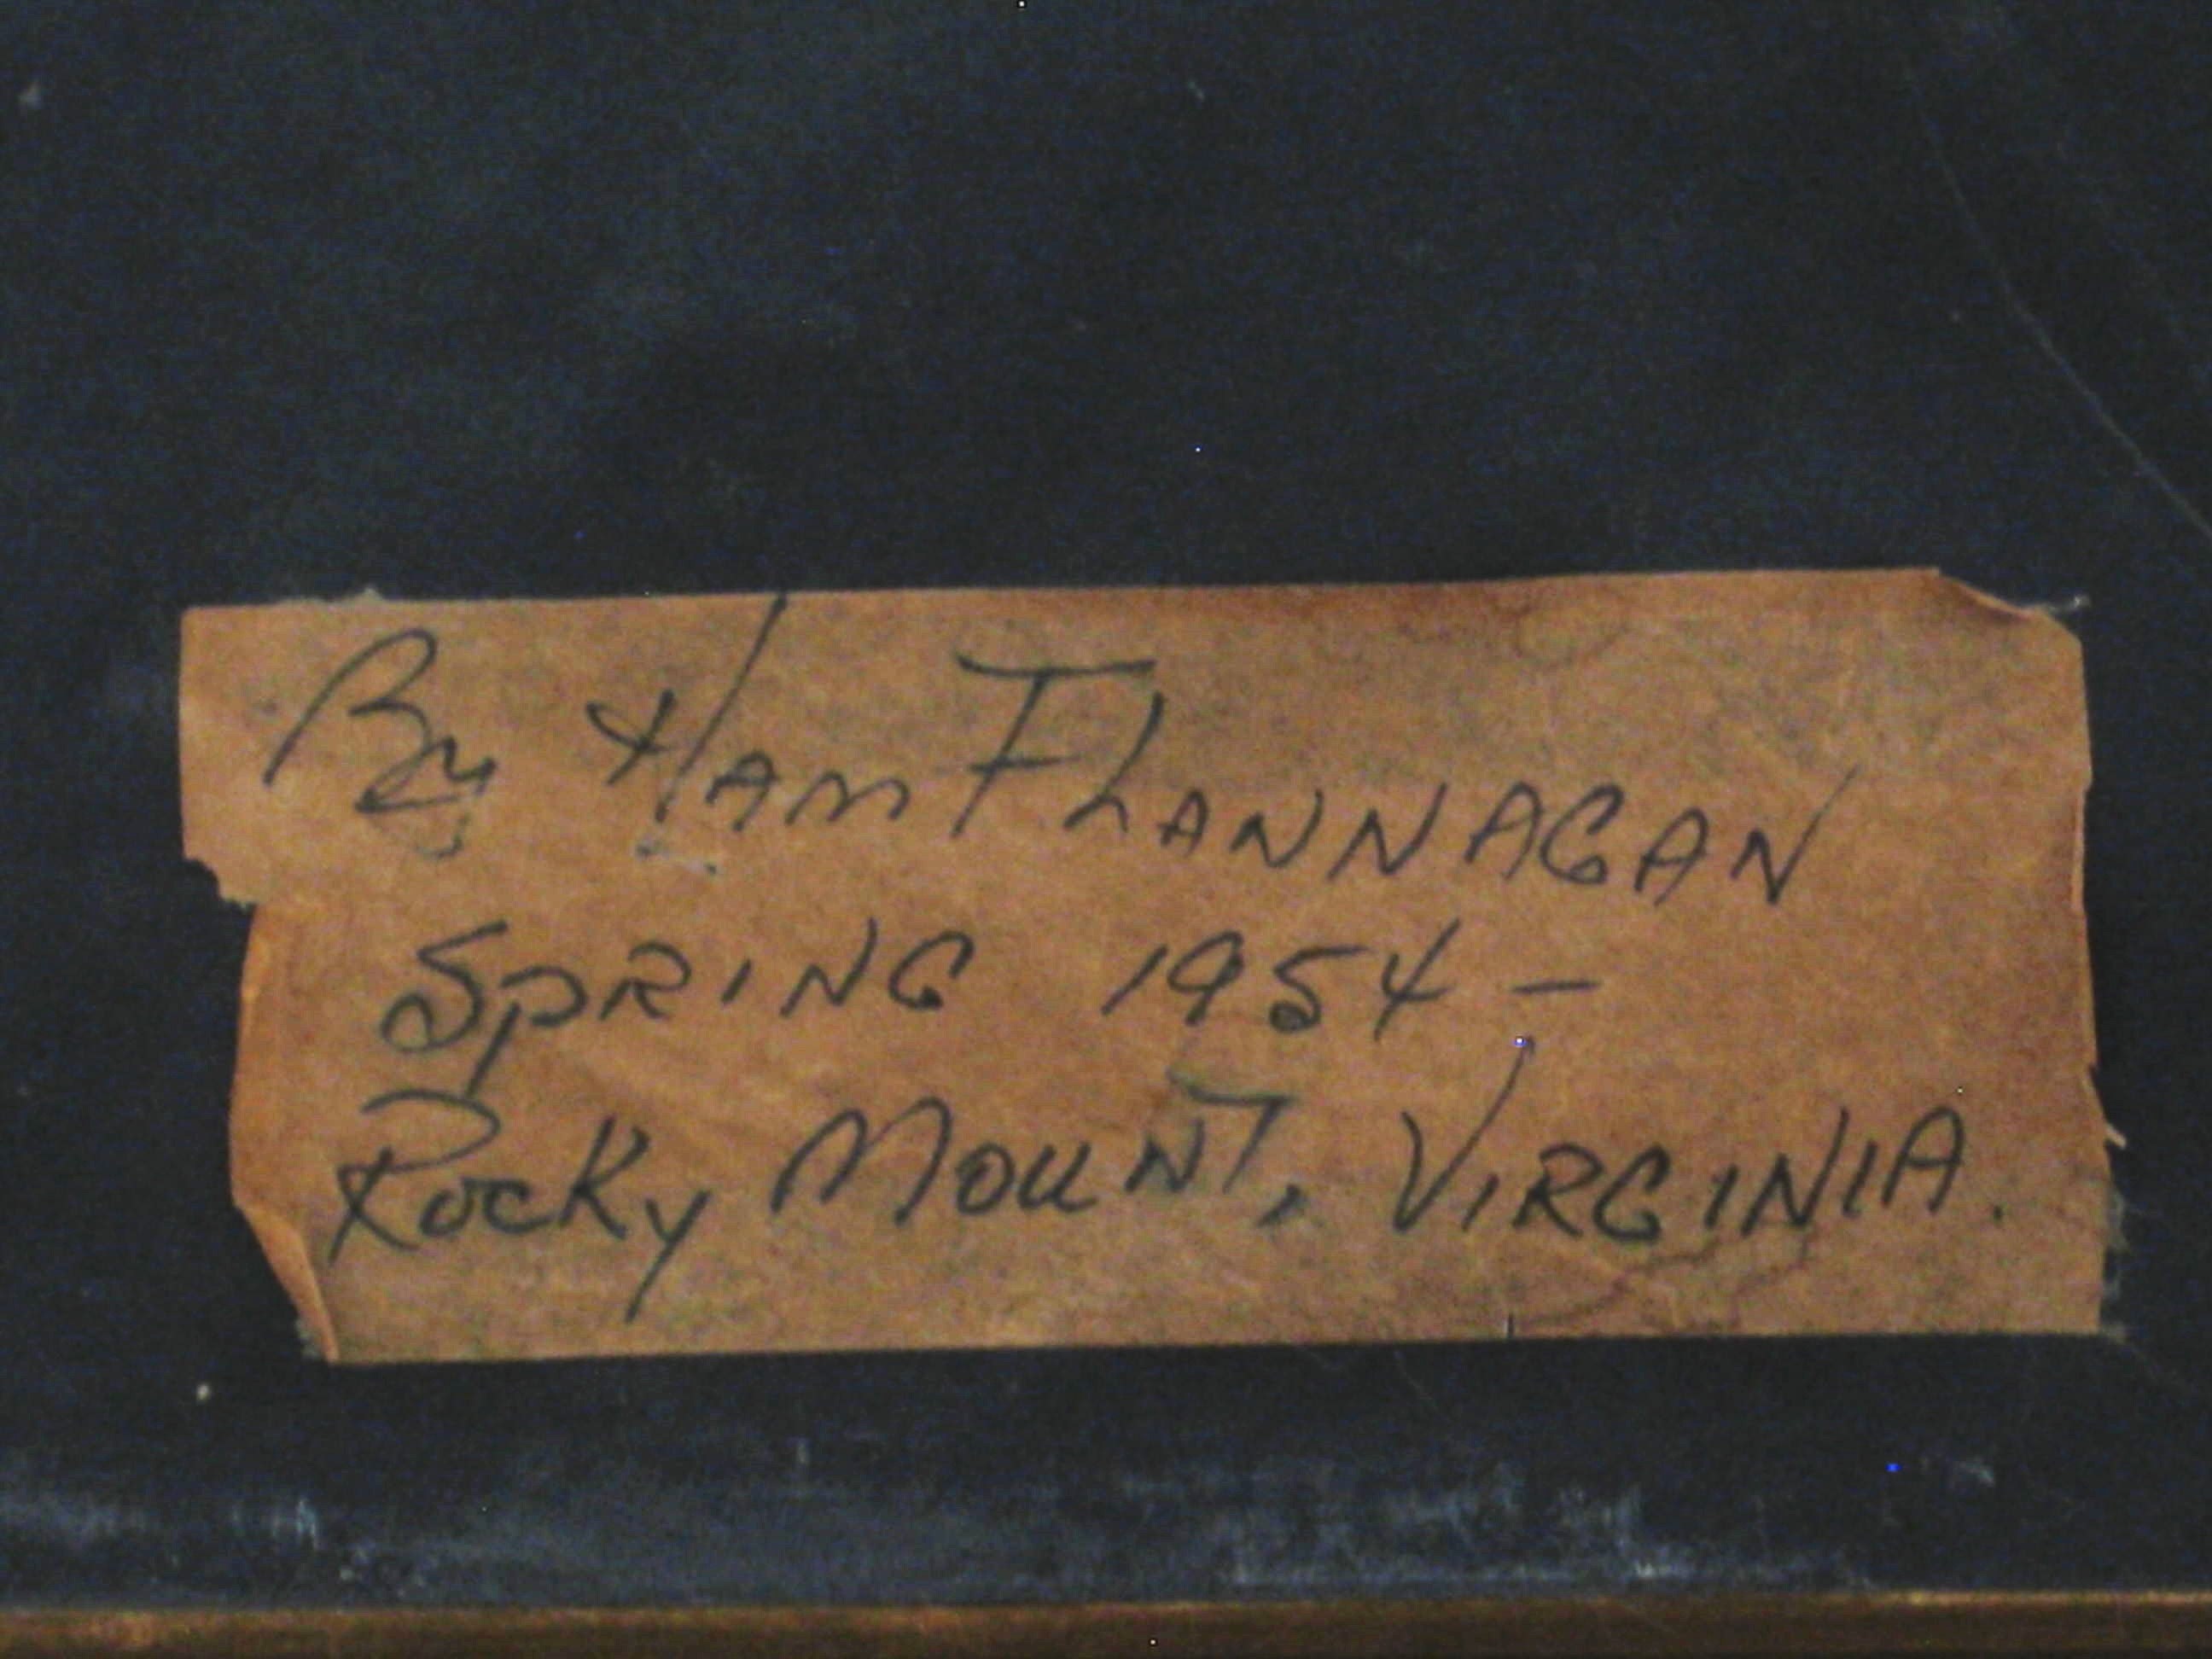 By Ham Flannagan
Spring 1954 -
Rocky Mount, Virginia.